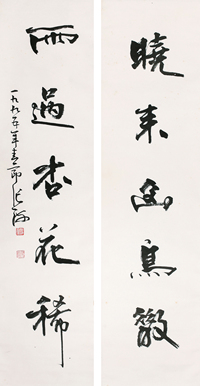 曉来幽鳥散
雨過杏花稀
一九九一年春節